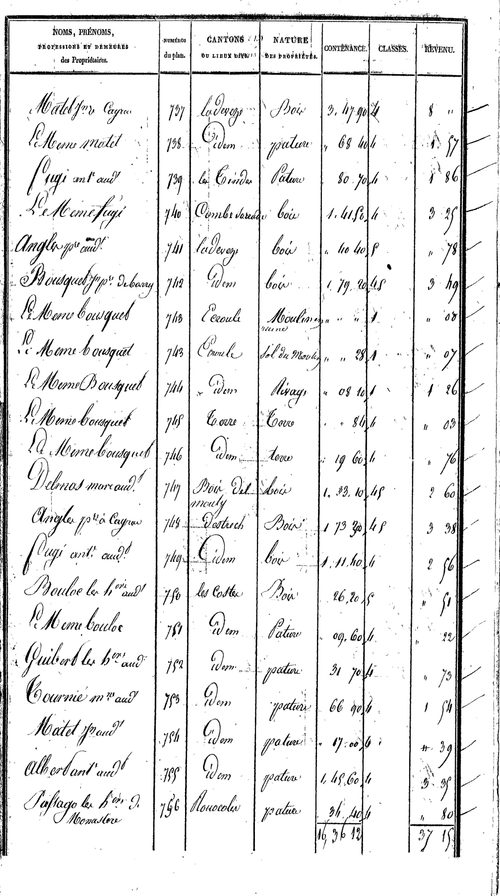 NOMS, PRÉNOMS, PROFESSIONS ET DEMEURES des Propriétaires. NUMÉROS du plan. CANTONS OU LIEUX DITS NATURE DES PROPRIÉTÉS. CONTENANCE. CLASSES. REVENU.
Matet 737 ladeveze Bois 3. 47. 90 4 8 "
Le Meme matet 738 idem pature " 68 40 4 1 57
Fugi ant. aud.t 739 Pature " 80 70 4 1 86
Le Meme fugi 740 bois 1. 41. 50 4 3 25
Angles aud.t 741 ladeveze bois " 40 40 5 " 78
Bousquet 742 idem bois 1. 79. 20 45 3 49
Le Meme bousquet 743 Moulin ruiné " " " 1 " 08
Le Meme bousquet 743 Sol du Moulin " " 28 1 " 07
Le Meme Bousquet 744 idem Rivage " 08 10 1 1 26
Le Meme bousquet 745 Terre Terre " " 84 4 " 03
Le Meme bousquet 746 idem terre " 19 60 4 " 76
Delmas marc aud.t 747 Bois del mouly bois 1. 33. 10 45 2 60
Angles à 748 Bois 1 73 30 45 3 38
Fugi ant. aud.t 749 idem bois 1. 11. 40 4 2 56
Bouloc les h.ers aud.t 750 les costes Bois 26. 20 5 " 51
Le Meme bouloc 751 idem Pature 09. 60 4 " 22
Guibert les h.ers aud.t 752 idem pature 31 70 4 " 73
Tournié aud.t 753 idem pature 66 90 4 1 54
Matet aud.t 754 idem pature " 17. 00 4 " 39
Albert ant. aud.t 755 idem pature 1. 45. 60 4 3 35
les h.ers de Monastere 756 pature 34. 40 4 " 80
16 36 12 37 15